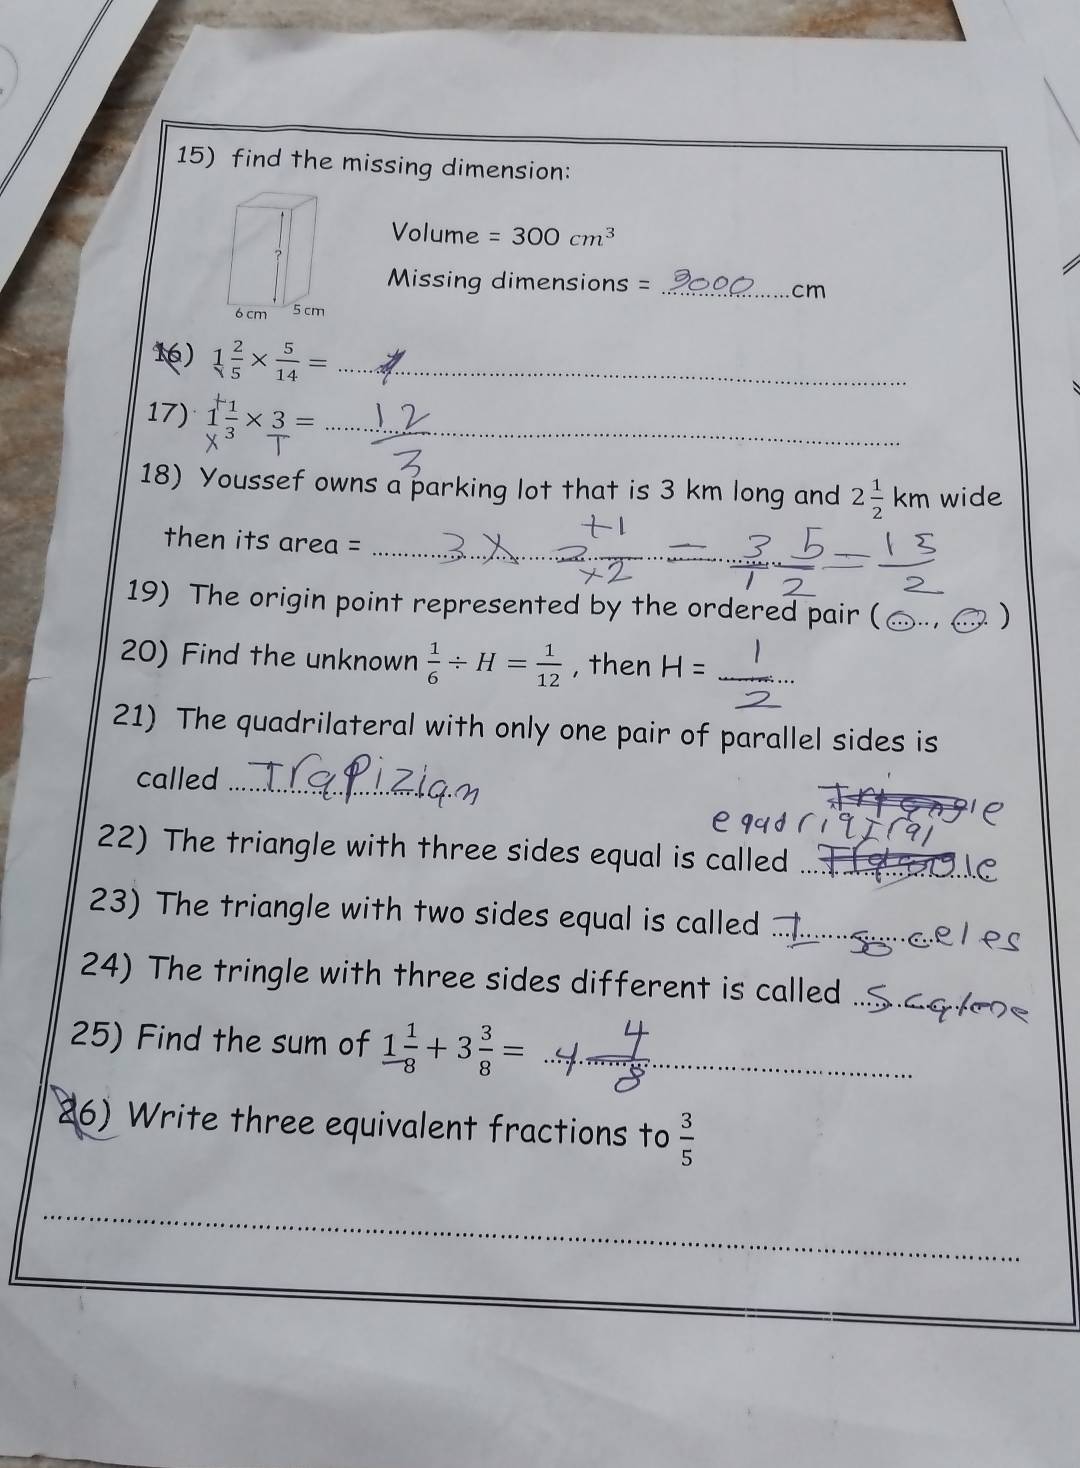 15) find the missing dimension:
?
6 cm 5 cm
Volume = 300 cm³
Missing dimensions = 9000 cm
16) 1 2/5 × 5/14 =
17) 1 1/3 × 3 = 12/3
+ × 1
18) Youssef owns a parking lot that is 3 km long and 2 1/2 km wide
then its area = 3 × 2 +1/×2 = 3/1 5/2 = 15/2
19) The origin point represented by the ordered pair ( 0 , 0 )
20) Find the unknown 1/6 ÷ H = 1/12 , then H = 1/2
21) The quadrilateral with only one pair of parallel sides is
called Trapizian
Triangle
eqadriqtral
22) The triangle with three sides equal is called
23) The triangle with two sides equal is called I so celes
24) The tringle with three sides different is called Scalene
25) Find the sum of 1 1/8 + 3 3/8 = 4 4/8
26) Write three equivalent fractions to 3/5